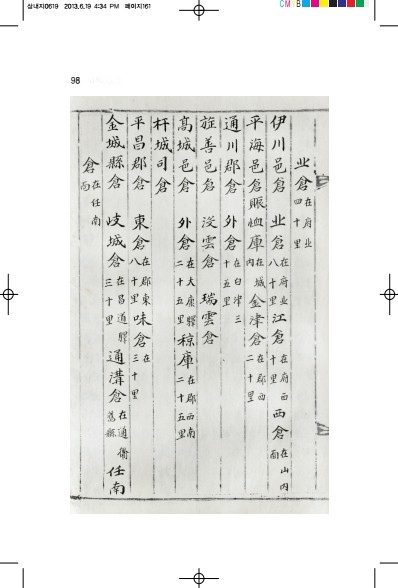 삼내지0619 2013.6.19 4:34 PM 페이지161
CM
98
北倉在府北四十里
伊川邑倉 北倉在府北八十里江倉在府西十里西倉在山內面
平海邑倉賑恤庫在城內金津倉在郡西二十里
通川郡倉 外倉在臼津三十五里
旌善邑倉 沒雲倉 瑞雲倉
高城邑倉 外倉在大康驛二十五里稤庫在郡西南二十五里
杆城司倉
平昌郡倉 東倉在郡東八十里味倉在三十里
金城縣倉 岐城倉在昌道驛三十里通溝倉在通溝舊縣任南
倉在任南面